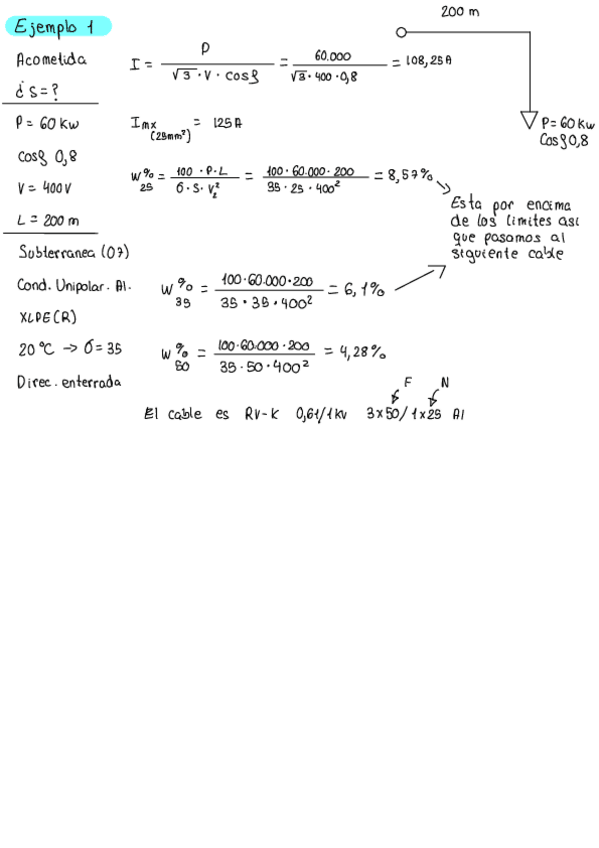 200 m
Ejemplo 1
Acometida
¿S=?
P = 60 Kw
Cosϕ 0,8
V = 400V
L = 200 m
Subterranea (07)
Cond. Unipolar. Al.
XLPE(R)
20 °C → σ = 35
Direc. enterrada
I = P / √3 · V · cosϕ = 60.000 / √3 · 400 · 0,8 = 108,25A
P = 60 Kw
Cosϕ 0,8
Imx (25mm²) = 125 A
W% 25 = 100 · P · L / σ · S · V₂² = 100 · 60.000 · 200 / 35 · 25 · 400² = 8,57%
Esta por encima
de los limites asi
que pasamos al
siguiente cable
W% 35 = 100 · 60.000 · 200 / 35 · 35 · 400² = 6,1%
W% 50 = 100 · 60.000 · 200 / 35 · 50 · 400² = 4,28%
F N
El cable es RV-K 0,61/1kv 3x50/1x25 Al